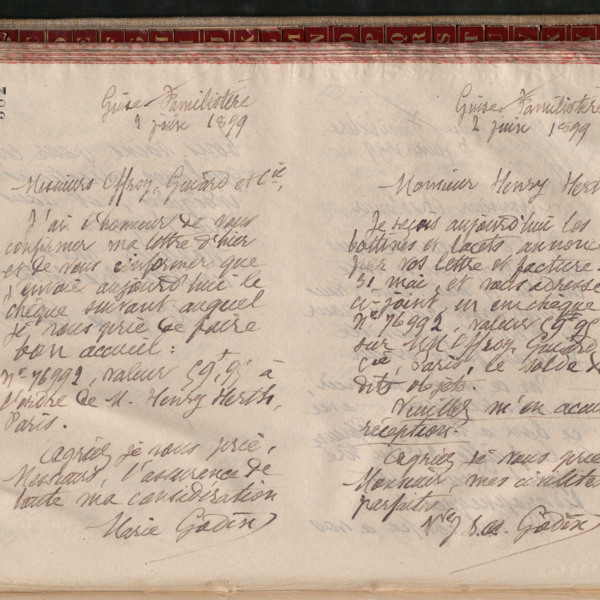 Guise Familistère
2 juin 1899
Messieurs Offroy, Guiard et Cie,
J'ai l'honneur de vous
confirmer ma lettre d'hier
et de vous informer que
j'envoie aujourd'hui le
chèque suivant auquel
je vous prie de faire
bon accueil :
No 76992, valeur 59f,95 à
l'ordre de M. Henry Herth,
Paris.
Agréez je vous prie,
Messieurs, l'assurance de
toute ma considération
Marie Godin
Guise Familistère
2 juin 1899
Monsieur Henry Hert
Je reçois aujourd'hui les
bottines et lacets annonc
par vos lettre et facture
31 mai, et vous adresse
ci-joint, un chèque
No 76992, valeur 59f,95
sur MM Offroy, Guiard
Cie, Paris, le solde d
dits objets.
Veuillez m'en accu
réception.
Agréez je vous prie
Monsieur, mes civilités
parfaites
Vve J. Bte A. Godin